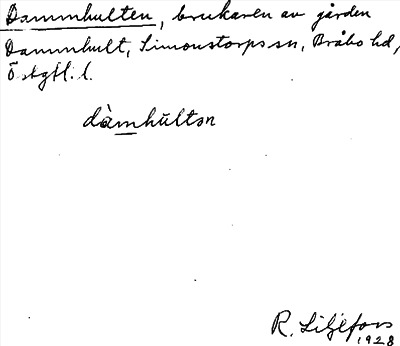 Dammhulten, brukaren av gården
Dammhult, Simonstorps sn, Bråbo hd,
Östgtl. l.
dàmhŭltən
R. Liljefors
1928